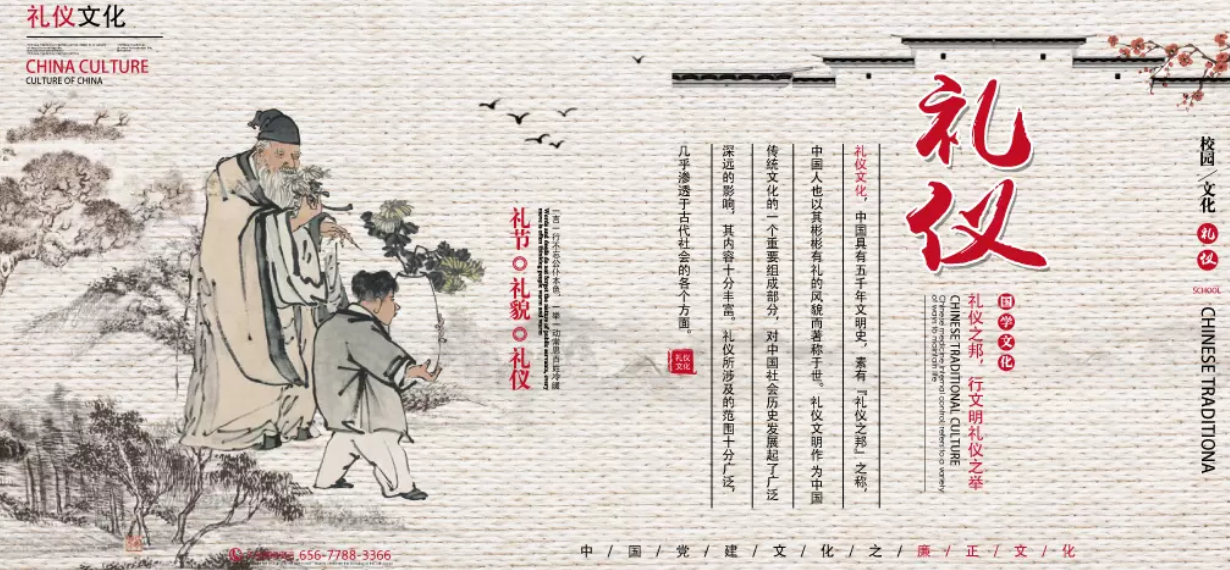 礼仪文化
CHINA CULTURE
CULTURE OF CHINA
礼仪
国学文化
礼仪之邦，行文明礼仪之举
CHINESE TRADITIONAL CULTURE
Chinese medicine internal control, refers to a variety
of ways to maintain life
校园/文化
礼仪
SCHOOL
CHINESE TRADITIONA
礼仪文化，中国具有五千年文明史，素有『礼仪之邦』之称，
中国人也以其彬彬有礼的风貌而著称于世。礼仪文明作为中国
传统文化的一个重要组成部分，对中国社会历史发展起了广泛
深远的影响，其内容十分丰富。礼仪所涉及的范围十分广泛，
几乎渗透于古代社会的各个方面。
礼仪文化
一言一行不忘公仆本色，一举一动常思百姓冷暖
礼节◎礼貌◎礼仪
656-7788-3366
中/国/党/建/文/化/之/廉/正/文/化